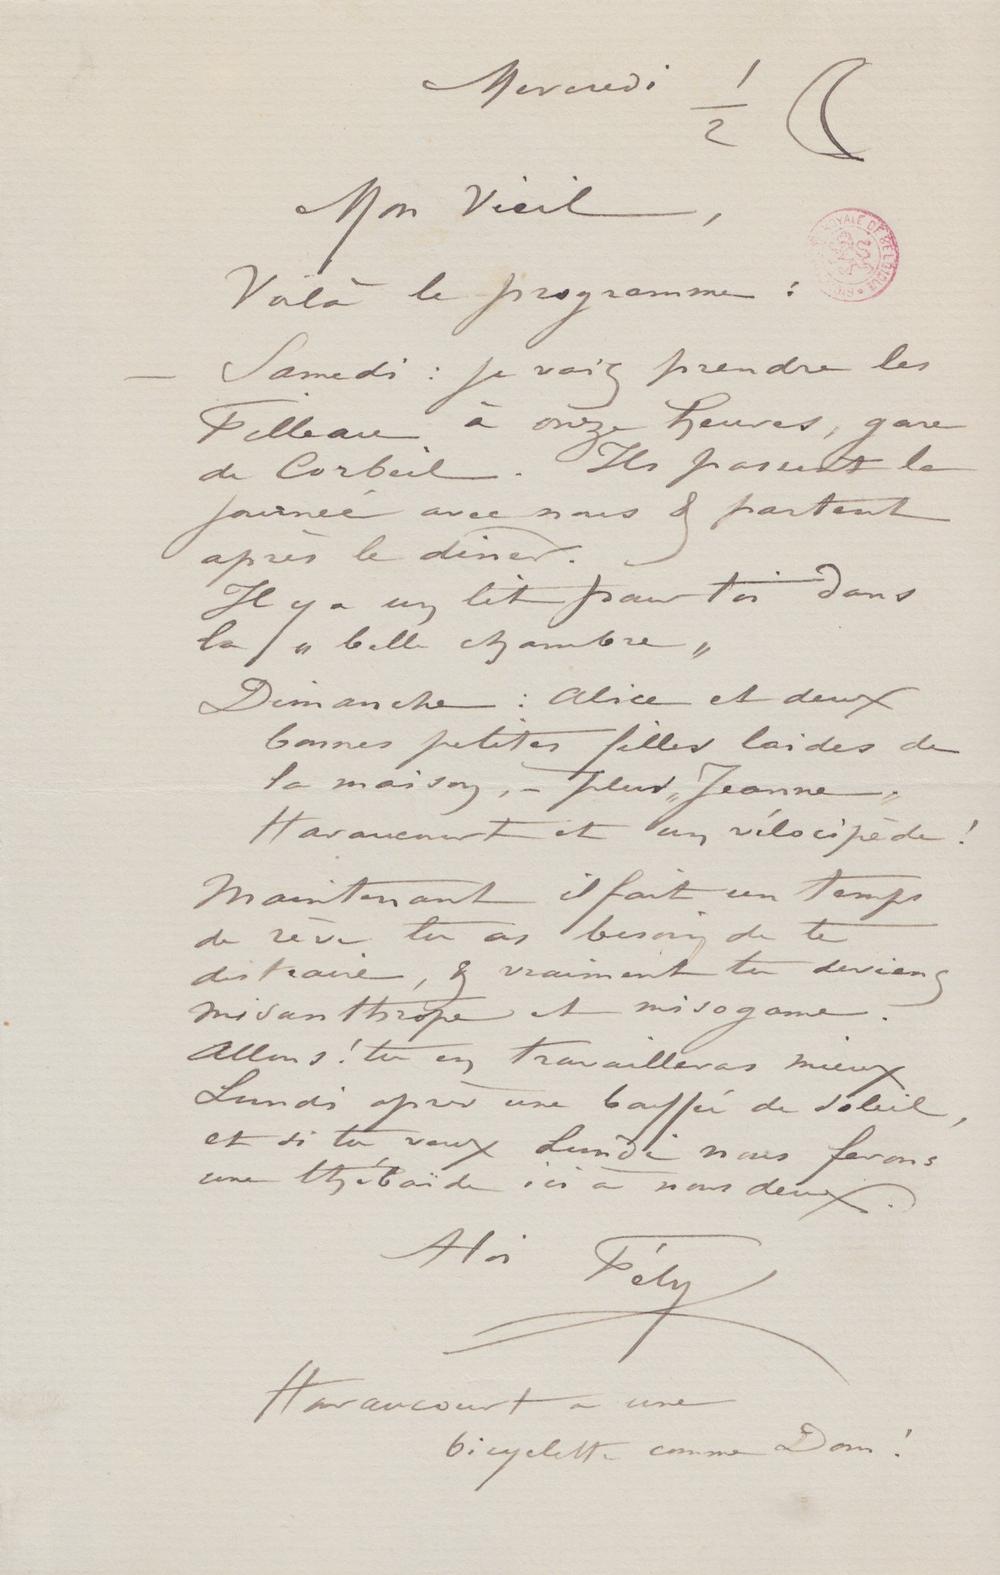 Mercredi 1/2
Mon Vieil,
Voilà le programme :
— Samedi : je vais prendre les
Filleau à onze heures, gare
de Corbeil. Ils passent la
journée avec nous & partent
après le diner.
Il y a un lit pour toi dans
la „ belle chambre „
Dimanche : Alice et deux
bonnes petites filles laides de
la maison, – plus „ Jeanne „
Haraucourt et un vélocipède !
Maintenant il fait un temps
de rève tu as besoin de te
distraire, & vraiment tu deviens
misanthrope et misogame.
Allons ! tu en travailleras mieux
Lundi après une bouffée de soleil,
et si tu veux Lundi nous ferons
une thébaïde ici à nous deux.
A toi Fély
Haraucourt a une
bicyclette comme Dom !
ROYALE DE BELGIQUE